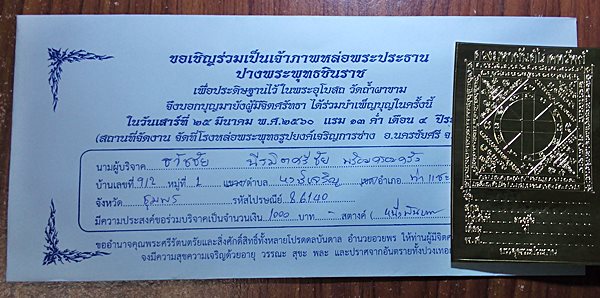 ขอเชิญร่วมเป็นเจ้าภาพหล่อพระประธาน
ปางพระพุทธชินราช
เพื่อประดิษฐานไว้ ในพระอุโบสถ วัดถ้ำผาขาม
จึงบอกบุญมายังผู้มีจิตศรัทธา ได้ร่วมบำเพ็ญบุญในครั้งนี้
ในวันเสาร์ที่ ๒๕ มีนาคม พ.ศ.๒๕๖๐ แรม ๑๓ ค่ำ เดือน ๔ ปี
(สถานที่จัดงาน จัดที่โรงหล่อพระพุทธรูปยงค์เจริญการช่าง อ.นครชัยศรี จ.
นามผู้บริจาค ธวัชชัย พร้อมครอบครัว
บ้านเลขที่ 91/2 หมู่ที่ 1 แขวง/ตำบล หงษ์เจริญ เขต/อำเภอ ท่าแซะ
จังหวัด ชุมพร รหัสไปรษณีย์ 86140
มีความประสงค์ขอร่วมบริจาคเป็นจำนวนเงิน 1000 บาท - สตางค์ (หนึ่งพันบาท
ขออำนาจคุณพระศรีรัตนตรัยและสิ่งศักดิ์สิทธิ์ทั้งหลายโปรดดลบันดาล อำนวยอวยพร ให้ท่านผู้มีจิตศ
จงมีความสุขความเจริญด้วยอายุ วรรณะ สุขะ พละ และปราศจากอันตรายทั้งปวงเทอ